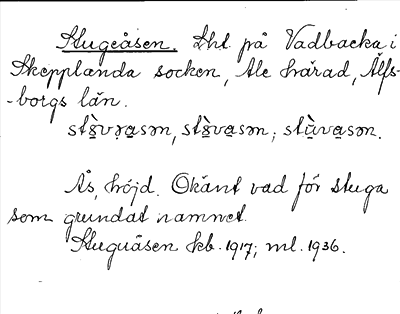 Stugeåsen. Lht. på Vadbacka i
Skepplanda socken, Ale härad, Älfs-
-borgs län.
stɷ̀vəa̠sən, stɷ̀va̠sən; stùva̠sən.
Ås, höjd. Okänt vad för stuga
som grundat namnet.
Stuguåsen kb. 1917; ml. 1936.